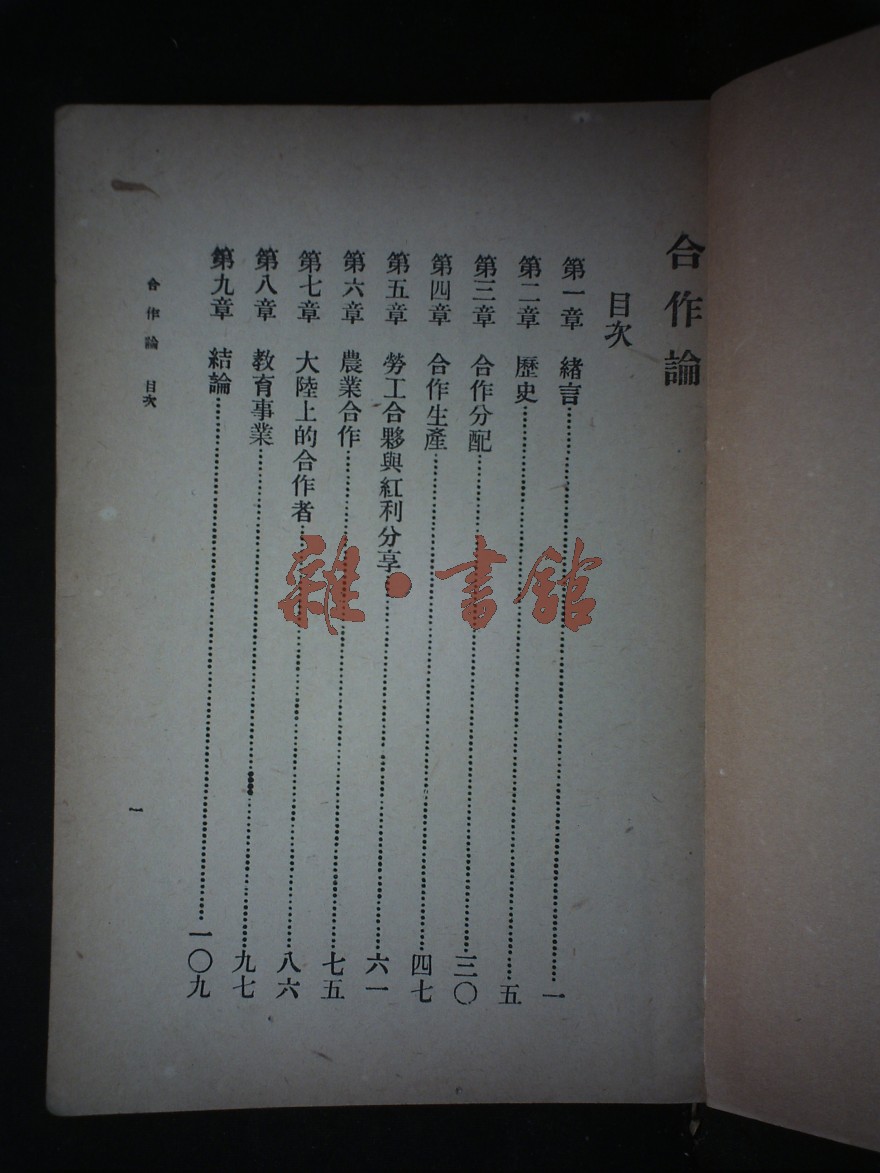 合作論
目次
第一章 緒言……一
第二章 歷史……五
第三章 合作分配……三〇
第四章 合作生產……四七
第五章 勞工合夥與紅利分享……六一
第六章 農業合作……七五
第七章 大陸上的合作者……八六
第八章 教育事業……九七
第九章 結論……一〇九
合作論 目次
一
雜·書館